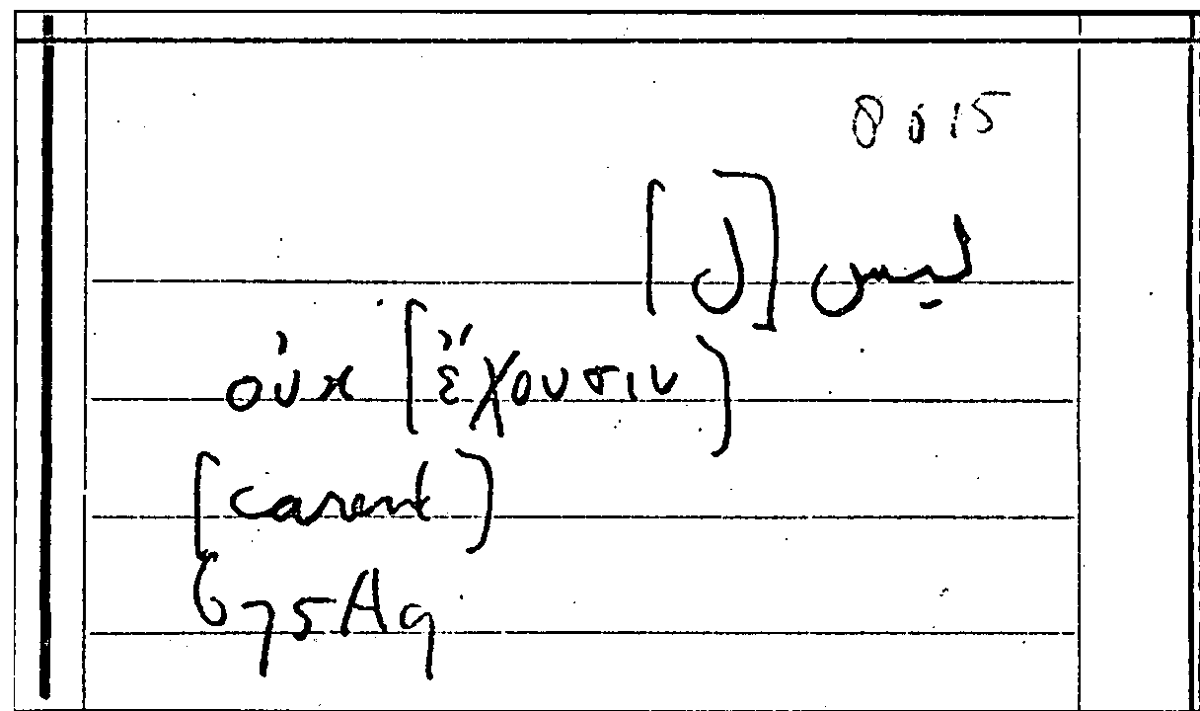 8015
ليس [ل]
οὐκ [ἔχουσιν]
[carent]
675A9